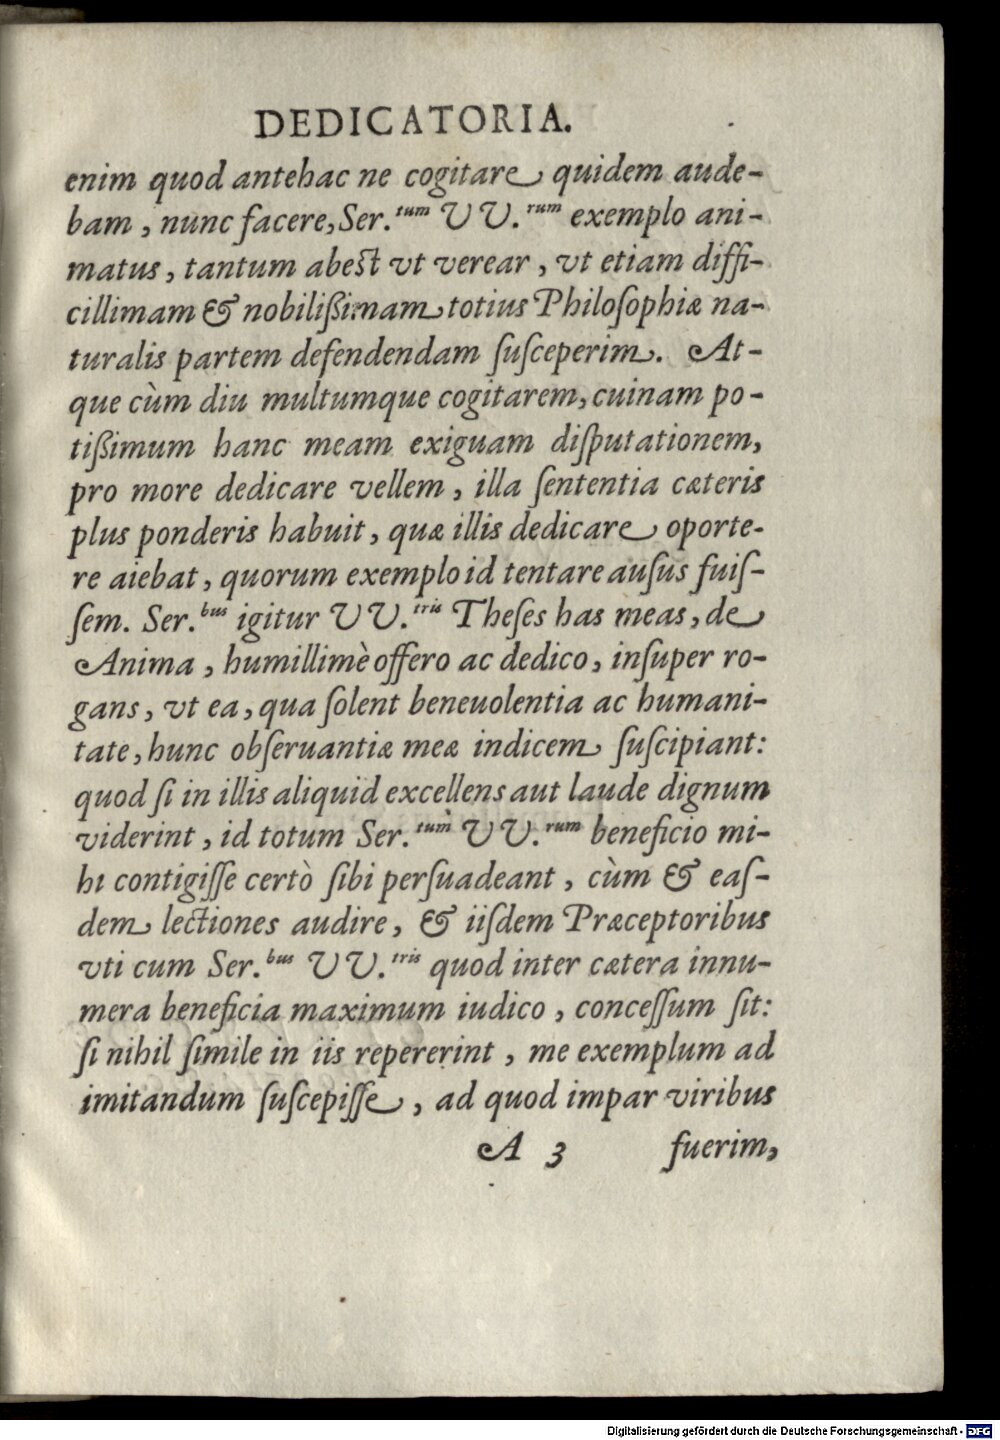 DEDICATORIA.
enim quod antehac ne cogitare quidem aude-
bam, nunc facere, Ser.tum VV.rum exemplo ani-
matus, tantum abest vt verear, vt etiam diffi-
cillimam & nobilißimam totius Philoſophiæ na-
turalis partem defendendam ſuſceperim. At-
que cùm diu multumque cogitarem, cuinam po-
tißimum hanc meam exiguam diſputationem,
pro more dedicare vellem, illa ſententia cæteris
plus ponderis habuit, quæ illis dedicare oporte-
re aiebat, quorum exemplo id tentare auſus fuiſ-
ſem. Ser.bus igitur VV.tris Theſes has meas, de
Anima, humillimè offero ac dedico, inſuper ro-
gans, vt ea, qua ſolent beneuolentia ac humani-
tate, hunc obſeruantiæ meæ indicem ſuſcipiant:
quod ſi in illis aliquid excellens aut laude dignum
viderint, id totum Ser.tum VV.rum beneficio mi-
hi contigiſſe certò ſibi perſuadeant, cùm & eaſ-
dem lectiones audire, & iiſdem Præceptoribus
vti cum Ser.bus VV.tris quod inter cætera innu-
mera beneficia maximum iudico, conceſſum ſit:
ſi nihil ſimile in iis repererint, me exemplum ad
imitandum ſuſcepiſſe, ad quod impar viribus
A 3 fuerim,
Digitalisierung gefördert durch die Deutsche Forschungsgemeinschaft - DFG